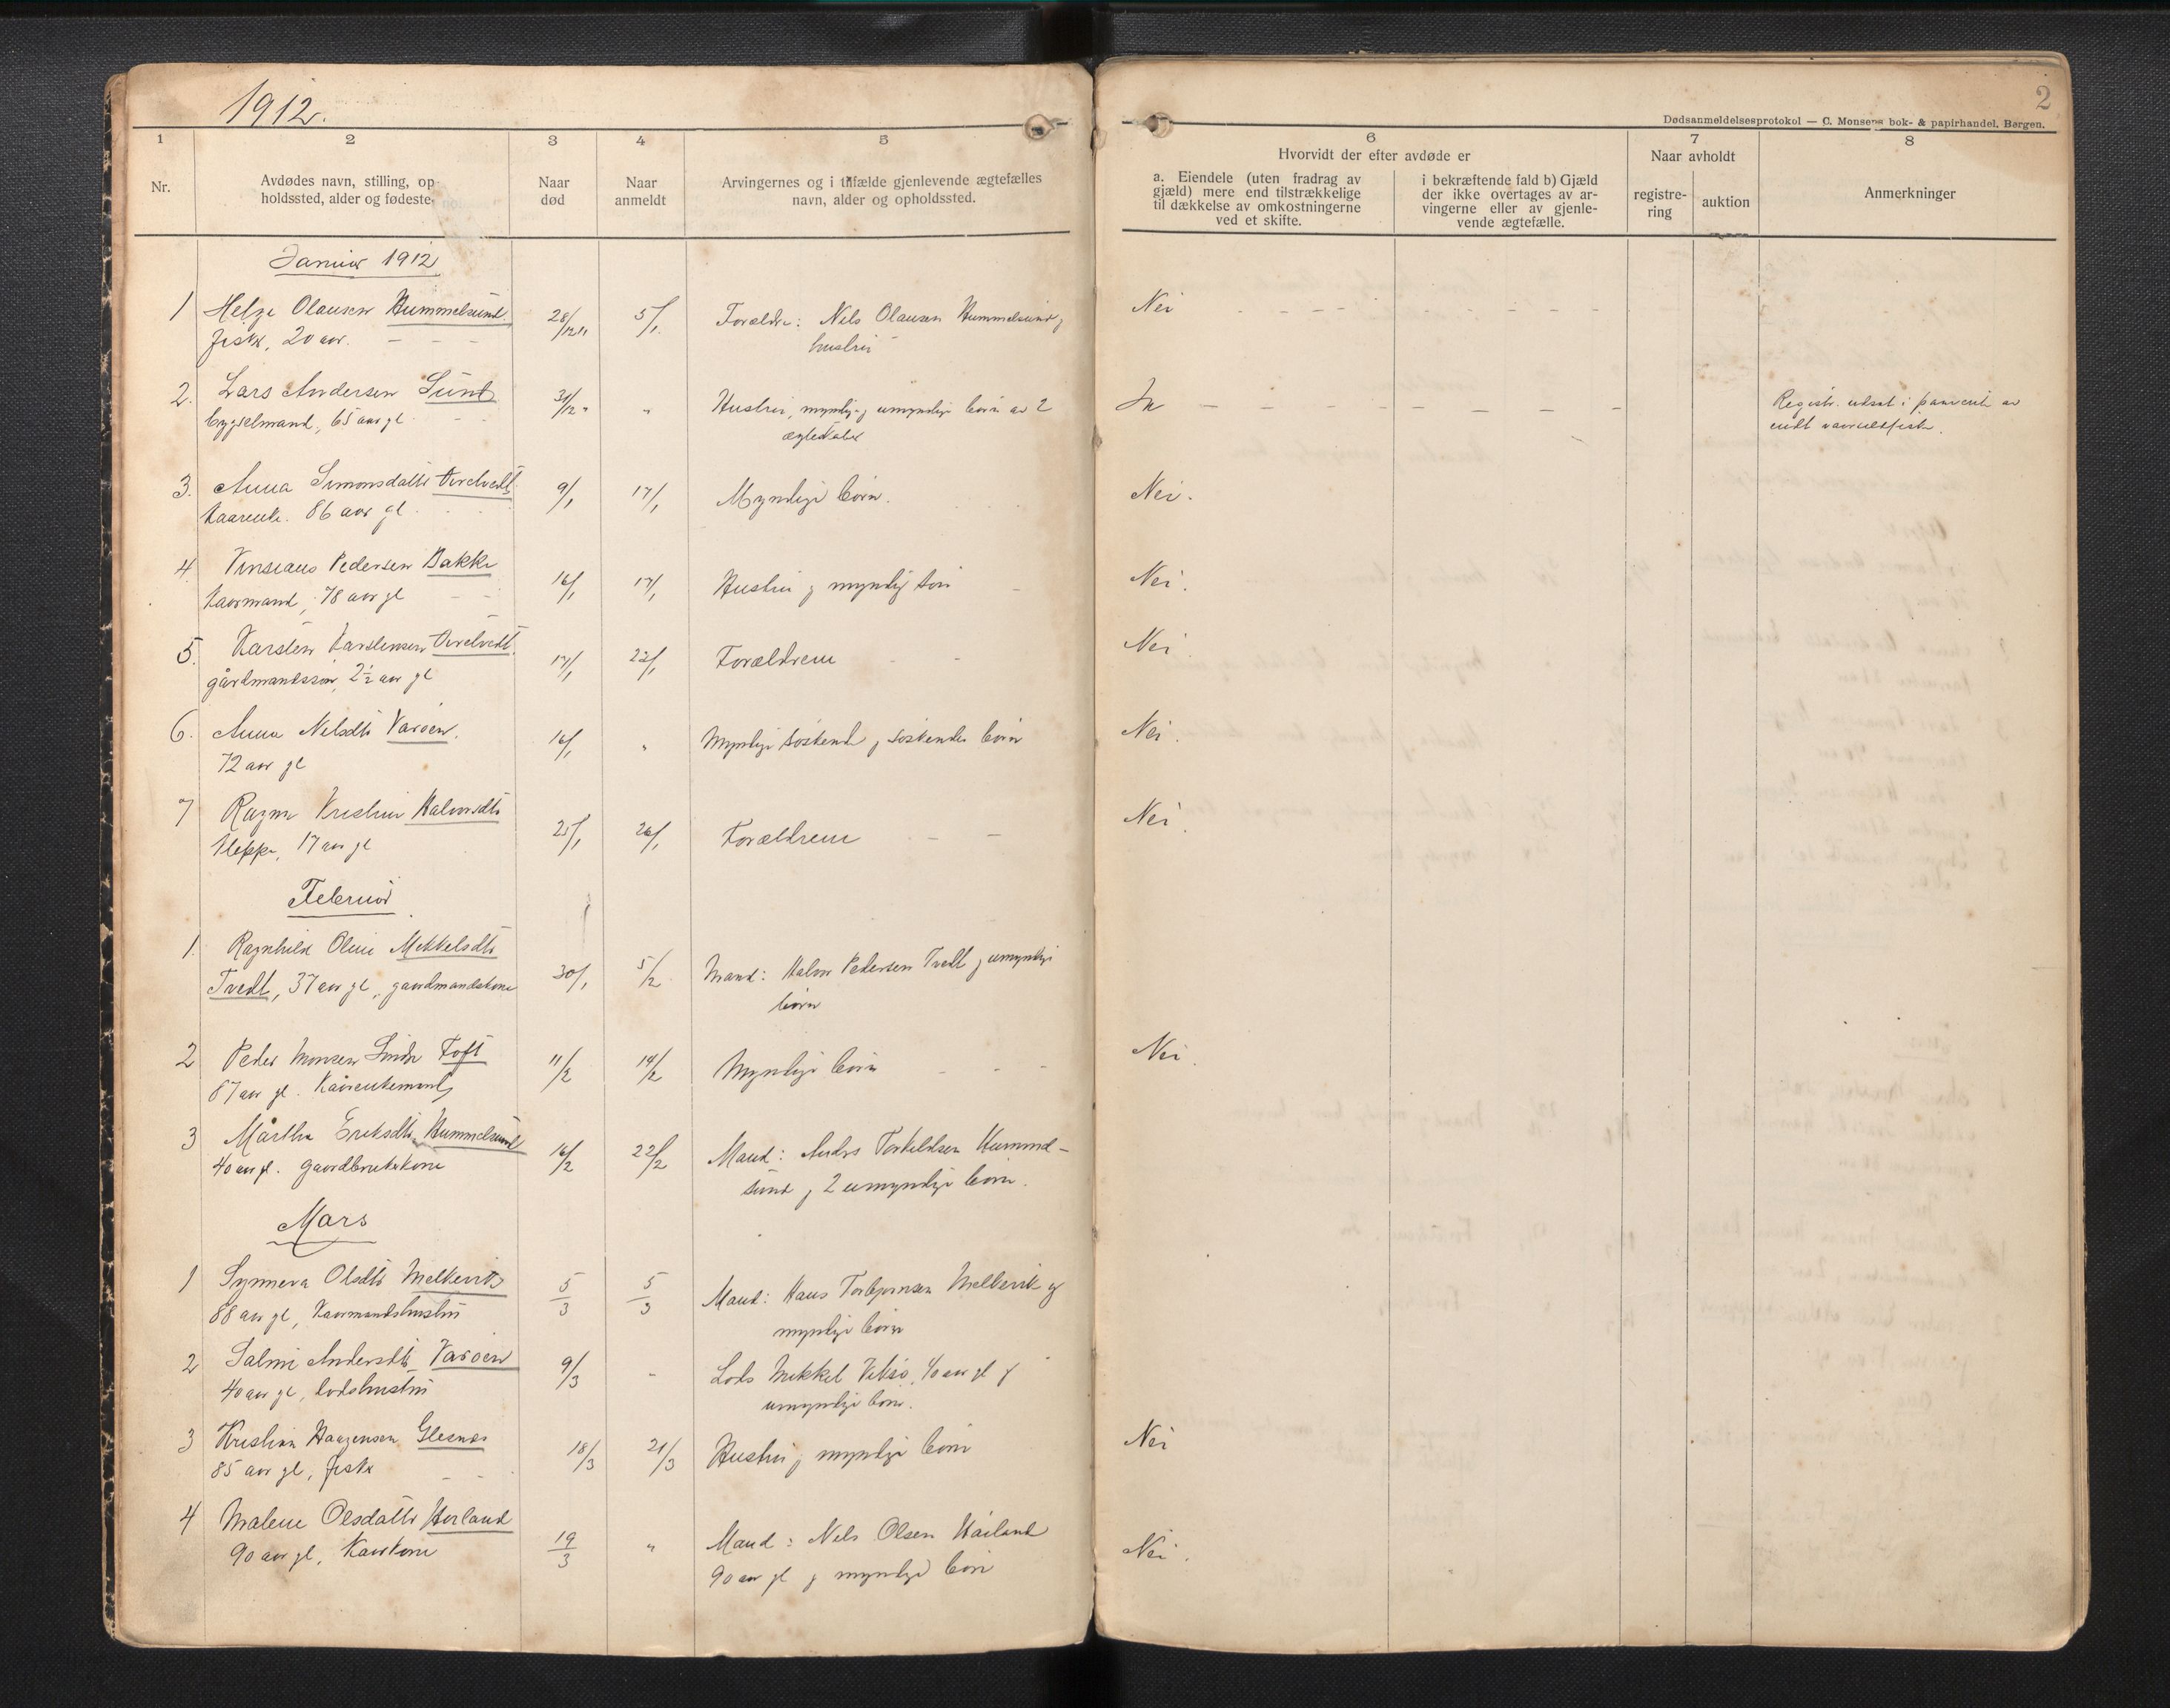 1912.
2
Dødsanmeldelsesprotokol — C. Monsens bok- & papirhandel, Bergen.
1 2 3 4 5 6 7 8
Nr.
Avdødes navn, stilling, op-
holdssted, alder og fødeste-
Naar
død
Naar
anmeldt
Arvingernes og i tilfælde gjenlevende ægtefælles
navn, alder og opholdssted.
Hvorvidt der efter avdøde er
a. Eiendele (uten fradrag av
gjæld) mere end tilstrækkelige
til dækkelse av omkostningerne
ved et skifte.
i bekræftende fald b) Gjæld
der ikke overtages av ar-
vingerne eller av gjenle-
vende ægtefælle.
Naar avholdt
registre-
ring
auktion
Anmerkninger
Januar 1912
1 Helge Olausen Hummelsund 28/12 11 5/1 Forældre: Nils Olausen Hummelsund og Nei
fisker, 20 aar. hustru
2. Lars Andersen Sund 31/12 " " Hustru, myndige og umyndige børn av 2 Ja Registr. utsat i paavente av
bygselmand, 65 aar gl ægteskaber endt vaarsildfiske.
3. Anna Simonsdatter 9/1 17/1 Myndige børn. Nei.
86 aar gl
4 Pedersen Bakke 16/1 17/1 Hustru og myndig søn Nei.
kaarmand, 78 aar gl
5. Karsten Karstensen 17/1 22/1 Forældrene Nei
gårdmandssøn, 2½ aar gl
6. Anna Nilsdtr Varøen. 16/1 " Myndige søskende og søskendes børn Nei.
72 aar gl
7 Ragna Kristine Halvorsdtr 25/1 26/1 Forældrene Nei.
Kleppe, 17 aar gl
Februar
1. Ragnhild Oline Mikkelsdtr 30/1 5/2 Mand: Halvor Pedersen Tvedt og umyndige
Tvedt, 37 aar gl, gaardmandskone børn
2 Peder Monsen Toft 11/2 14/2 Myndige børn Nei.
87 aar gl. Kaarenkemand
3 Martha Eriksdtr. Hummelsund 16/2 22/2 Mand: Anders Torkildsen Hummel-
40 aar gl. gaardbrukerkone sund og 2 umyndige børn.
Mars
1 Synneva Olsdtr Melkevik 5/3 5/3 Mand: Hans Torbjørnsen Melkevik og
88 aar gl, Kaarmandshustru myndige børn
2 Salmi Andersdtr. Varøen 9/3 - Lods Mikkel 40 aar gl og
40 aar gl, lodshustru umyndige børn.
3 Kristian Haagensen Glesnes 18/3 21/3 Hustru og myndige børn Nei
85 aar gl, fisker
4 Malene Olsdatter 19/3 " Mand: Nils Olsen Nei.
90 aar gl, Kaarkone 90 aar gl og myndige børn